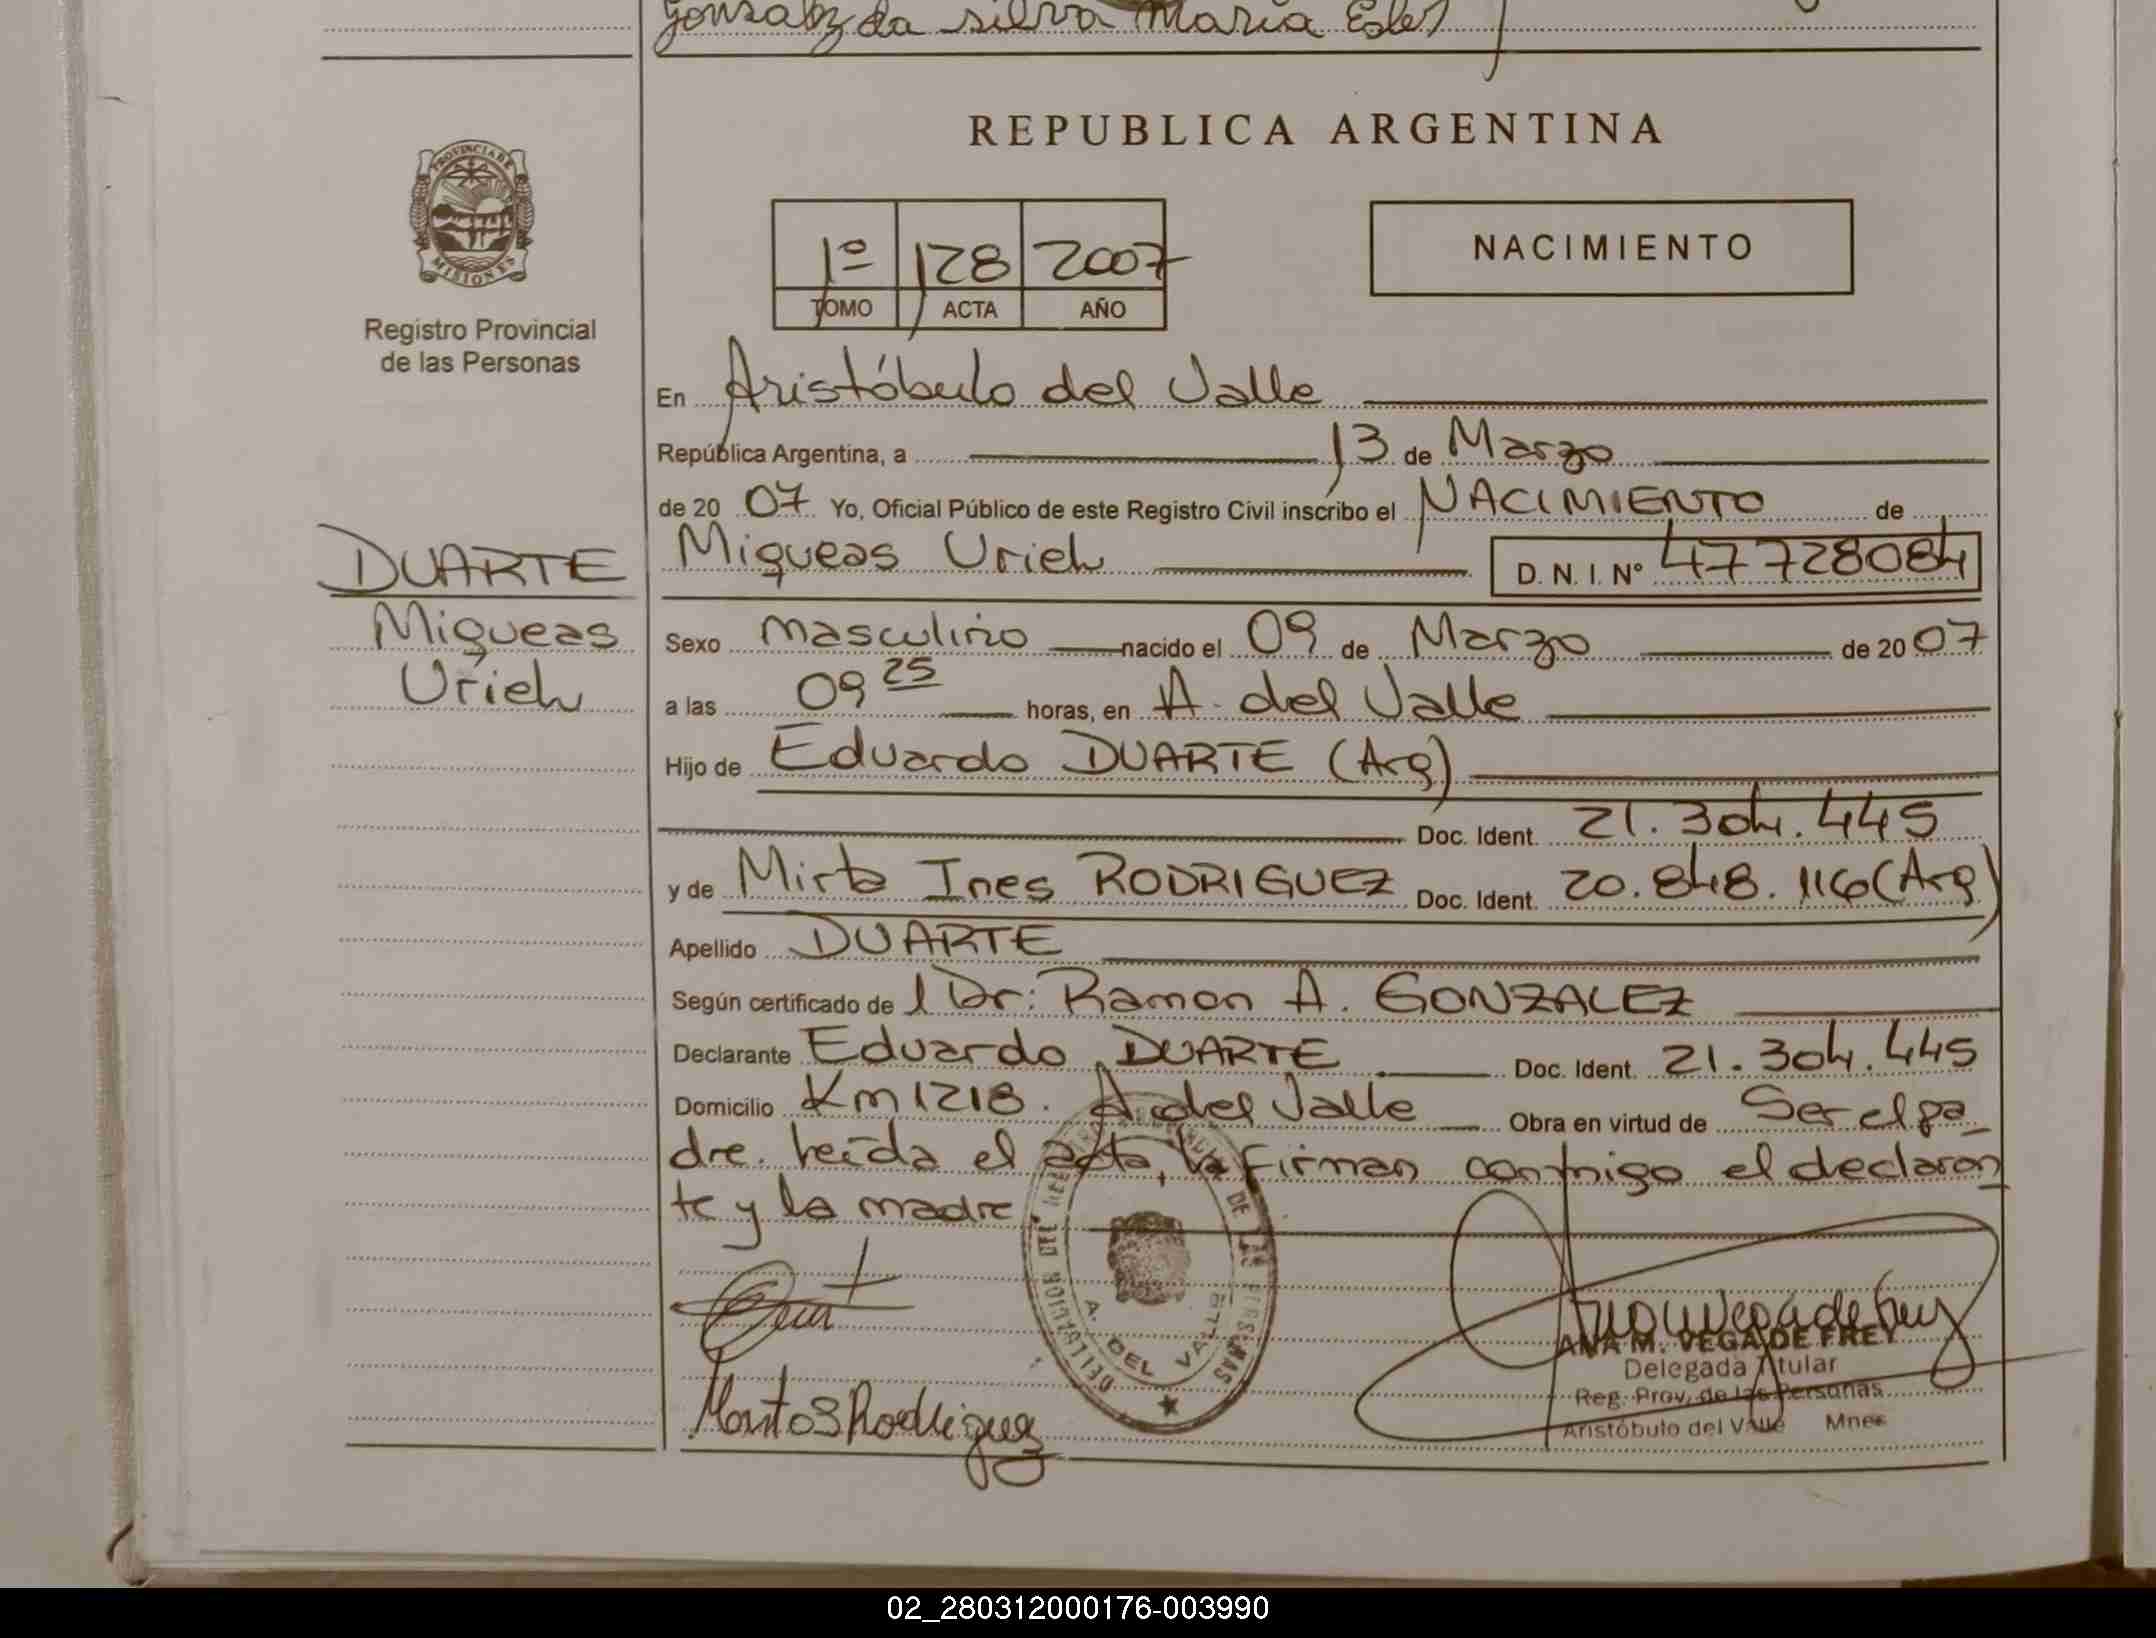 Gonzalez da silva Maria Ester
PROVINCIA DE
MISIONES
Registro Provincial
de las Personas
REPUBLICA ARGENTINA
1º 128 2007
TOMO ACTA AÑO
NACIMIENTO
En Aristóbulo del Valle
República Argentina, a 13 de Marzo
de 20 07 Yo, Oficial Público de este Registro Civil inscribo el NACIMIENTO de
DUARTE
Miqueas
Uriel
Miqueas Uriel D. N. I. Nº 47728084
Sexo masculino nacido el 09 de Marzo de 20 07
a las 09 25 horas, en A. del Valle
Hijo de Eduardo DUARTE (Arg)
Doc. Ident. 21.304.445
y de Mirta Ines RODRIGUEZ Doc. Ident. 20.848.116 (Arg)
Apellido DUARTE
Según certificado de l Dr: Ramon A. GONZALEZ
Declarante Eduardo DUARTE Doc. Ident. 21.304.445
Domicilio Km 1218. A. del Valle Obra en virtud de Ser el pa_
dre. Leída el acta, la firman conmigo el declaran
te y la madre
A. DEL VALLE
Rodriguez
ANA M. VEGA DE FREY
Delegada Titular
Reg. Prov. de las Personas
Aristóbulo del Valle Mnes
02_280312000176-003990